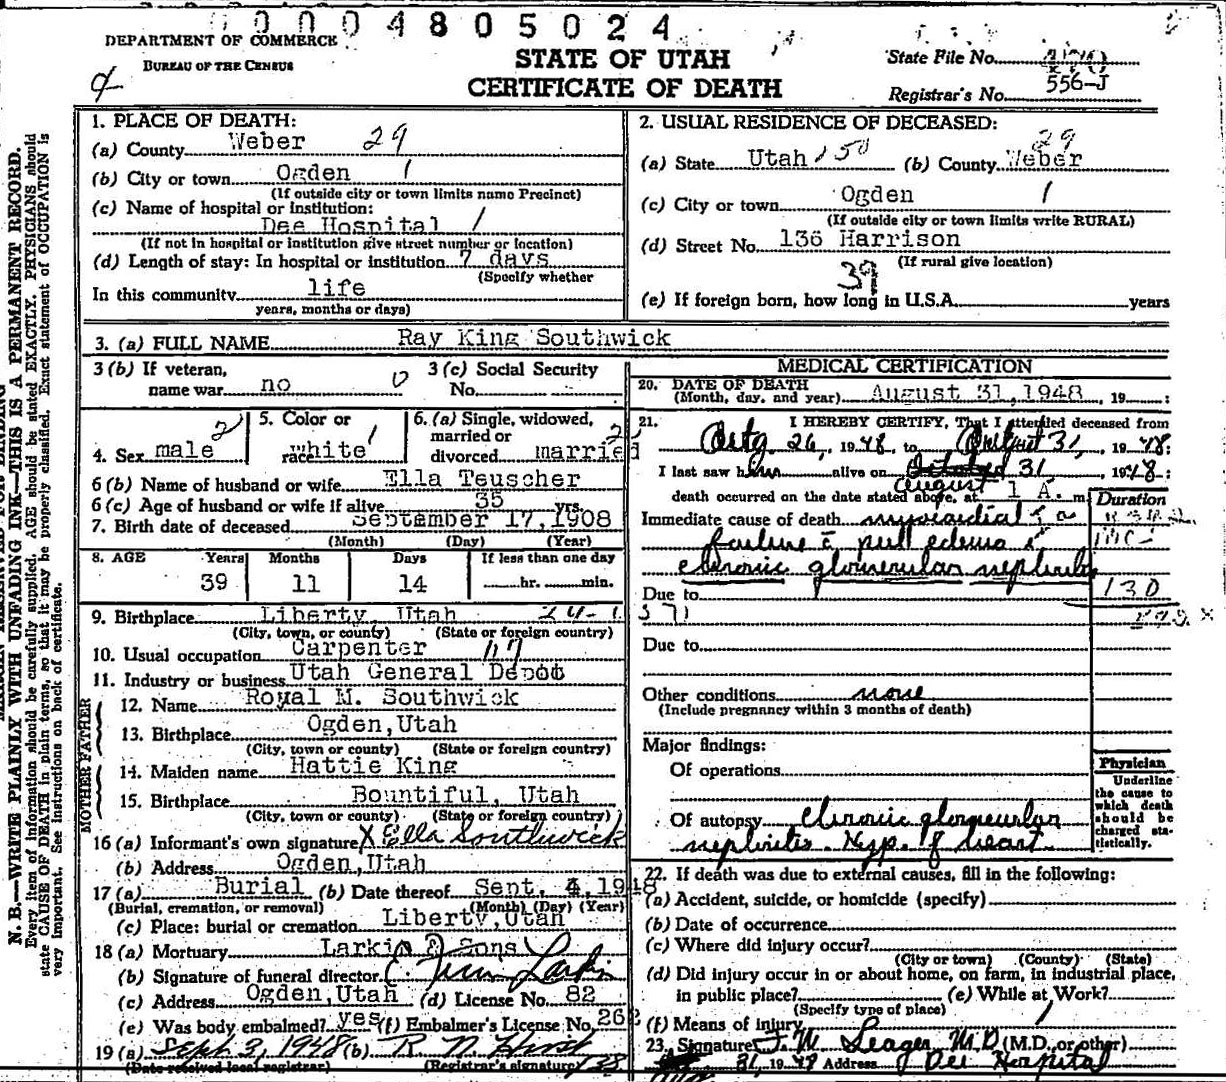 00004805024
DEPARTMENT OF COMMERCE
BUREAU OF THE CENSUS
STATE OF UTAH
CERTIFICATE OF DEATH
State File No.
Registrar's No. 556-J
N. B.—WRITE PLAINLY WITH UNFADING INK—THIS IS A PERMANENT RECORD.
Every item of information should be carefully supplied. AGE should be stated EXACTLY. PHYSICIANS should
state CAUSE OF DEATH in plain terms, so that it may be properly classified. Exact statement of OCCUPATION is
very important. See instructions on back of certificate.
1. PLACE OF DEATH:
(a) County Weber 29
(b) City or town Ogden 1
(If outside city or town limits name Precinct)
(c) Name of hospital or institution:
Dee Hospital 1
(If not in hospital or institution give street number or location)
(d) Length of stay: In hospital or institution 7 days
(Specify whether
In this community life
years, months or days)
2. USUAL RESIDENCE OF DECEASED:
29
(a) State Utah 150 (b) County Weber
(c) City or town Ogden 1
(If outside city or town limits write RURAL)
(d) Street No. 136 Harrison
(If rural give location)
39
(e) If foreign born, how long in U.S.A. years
3. (a) FULL NAME Ray King Southwick
3 (b) If veteran,
name war no 0
3 (c) Social Security
No.
4. Sex male 2
5. Color or
race white 1
6. (a) Single, widowed,
married or
divorced married 2
6 (b) Name of husband or wife Ella Teuscher
6 (c) Age of husband or wife if alive 35 yrs.
7. Birth date of deceased September 17, 1908
(Month) (Day) (Year)
8. AGE Years Months Days If less than one day
39 11 14 hr. min.
9. Birthplace Liberty, Utah 24-1
(City, town, or county) (State or foreign country)
10. Usual occupation Carpenter
11. Industry or business Utah General Depot
FATHER
12. Name Royal M. Southwick
13. Birthplace Ogden, Utah
(City, town or county) (State or foreign country)
MOTHER
14. Maiden name Hattie King
15. Birthplace Bountiful, Utah
(City, town or county) (State or foreign country)
16 (a) Informant's own signature X Ella Southwick
(b) Address Ogden, Utah
17 (a) Burial (b) Date thereof Sept. 4, 1948
(Burial, cremation, or removal) (Month) (Day) (Year)
(c) Place: burial or cremation Liberty, Utah
18 (a) Mortuary Larkin & Sons
(b) Signature of funeral director Larkin
(c) Address Ogden, Utah (d) License No. 82
(e) Was body embalmed? yes (f) Embalmer's License No. 262
19 (a) Sept 3, 1948 (b) R N Hirst
(Date received local registrar) (Registrar's signature)
MEDICAL CERTIFICATION
20. DATE OF DEATH
(Month, day, and year) August 31, 1948, 19
21. I HEREBY CERTIFY, That I attended deceased from
26, 1948, to August 31, 1948:
I last saw him alive on 31 1948:
August
death occurred on the date stated above, at 1 A. m.
Duration
Immediate cause of death myocardial
failure c̄ pull edema
chronic glomerular nephritis
Due to 130
Due to
Other conditions none
(Include pregnancy within 3 months of death)
Major findings:
Of operations
Of autopsy Chronic glomerular
nephritis. Hyp. of heart.
Physician
Underline
the cause to
which death
should be
charged sta-
tistically.
22. If death was due to external causes, fill in the following:
(a) Accident, suicide, or homicide (specify)
(b) Date of occurrence
(c) Where did injury occur?
(City or town) (County) (State)
(d) Did injury occur in or about home, on farm, in industrial place,
in public place? (e) While at Work?
(Specify type of place)
(f) Means of injury
23. Signature J. W. Seager M.D (M.D. or other)
31, 1948 Address Dee Hospital